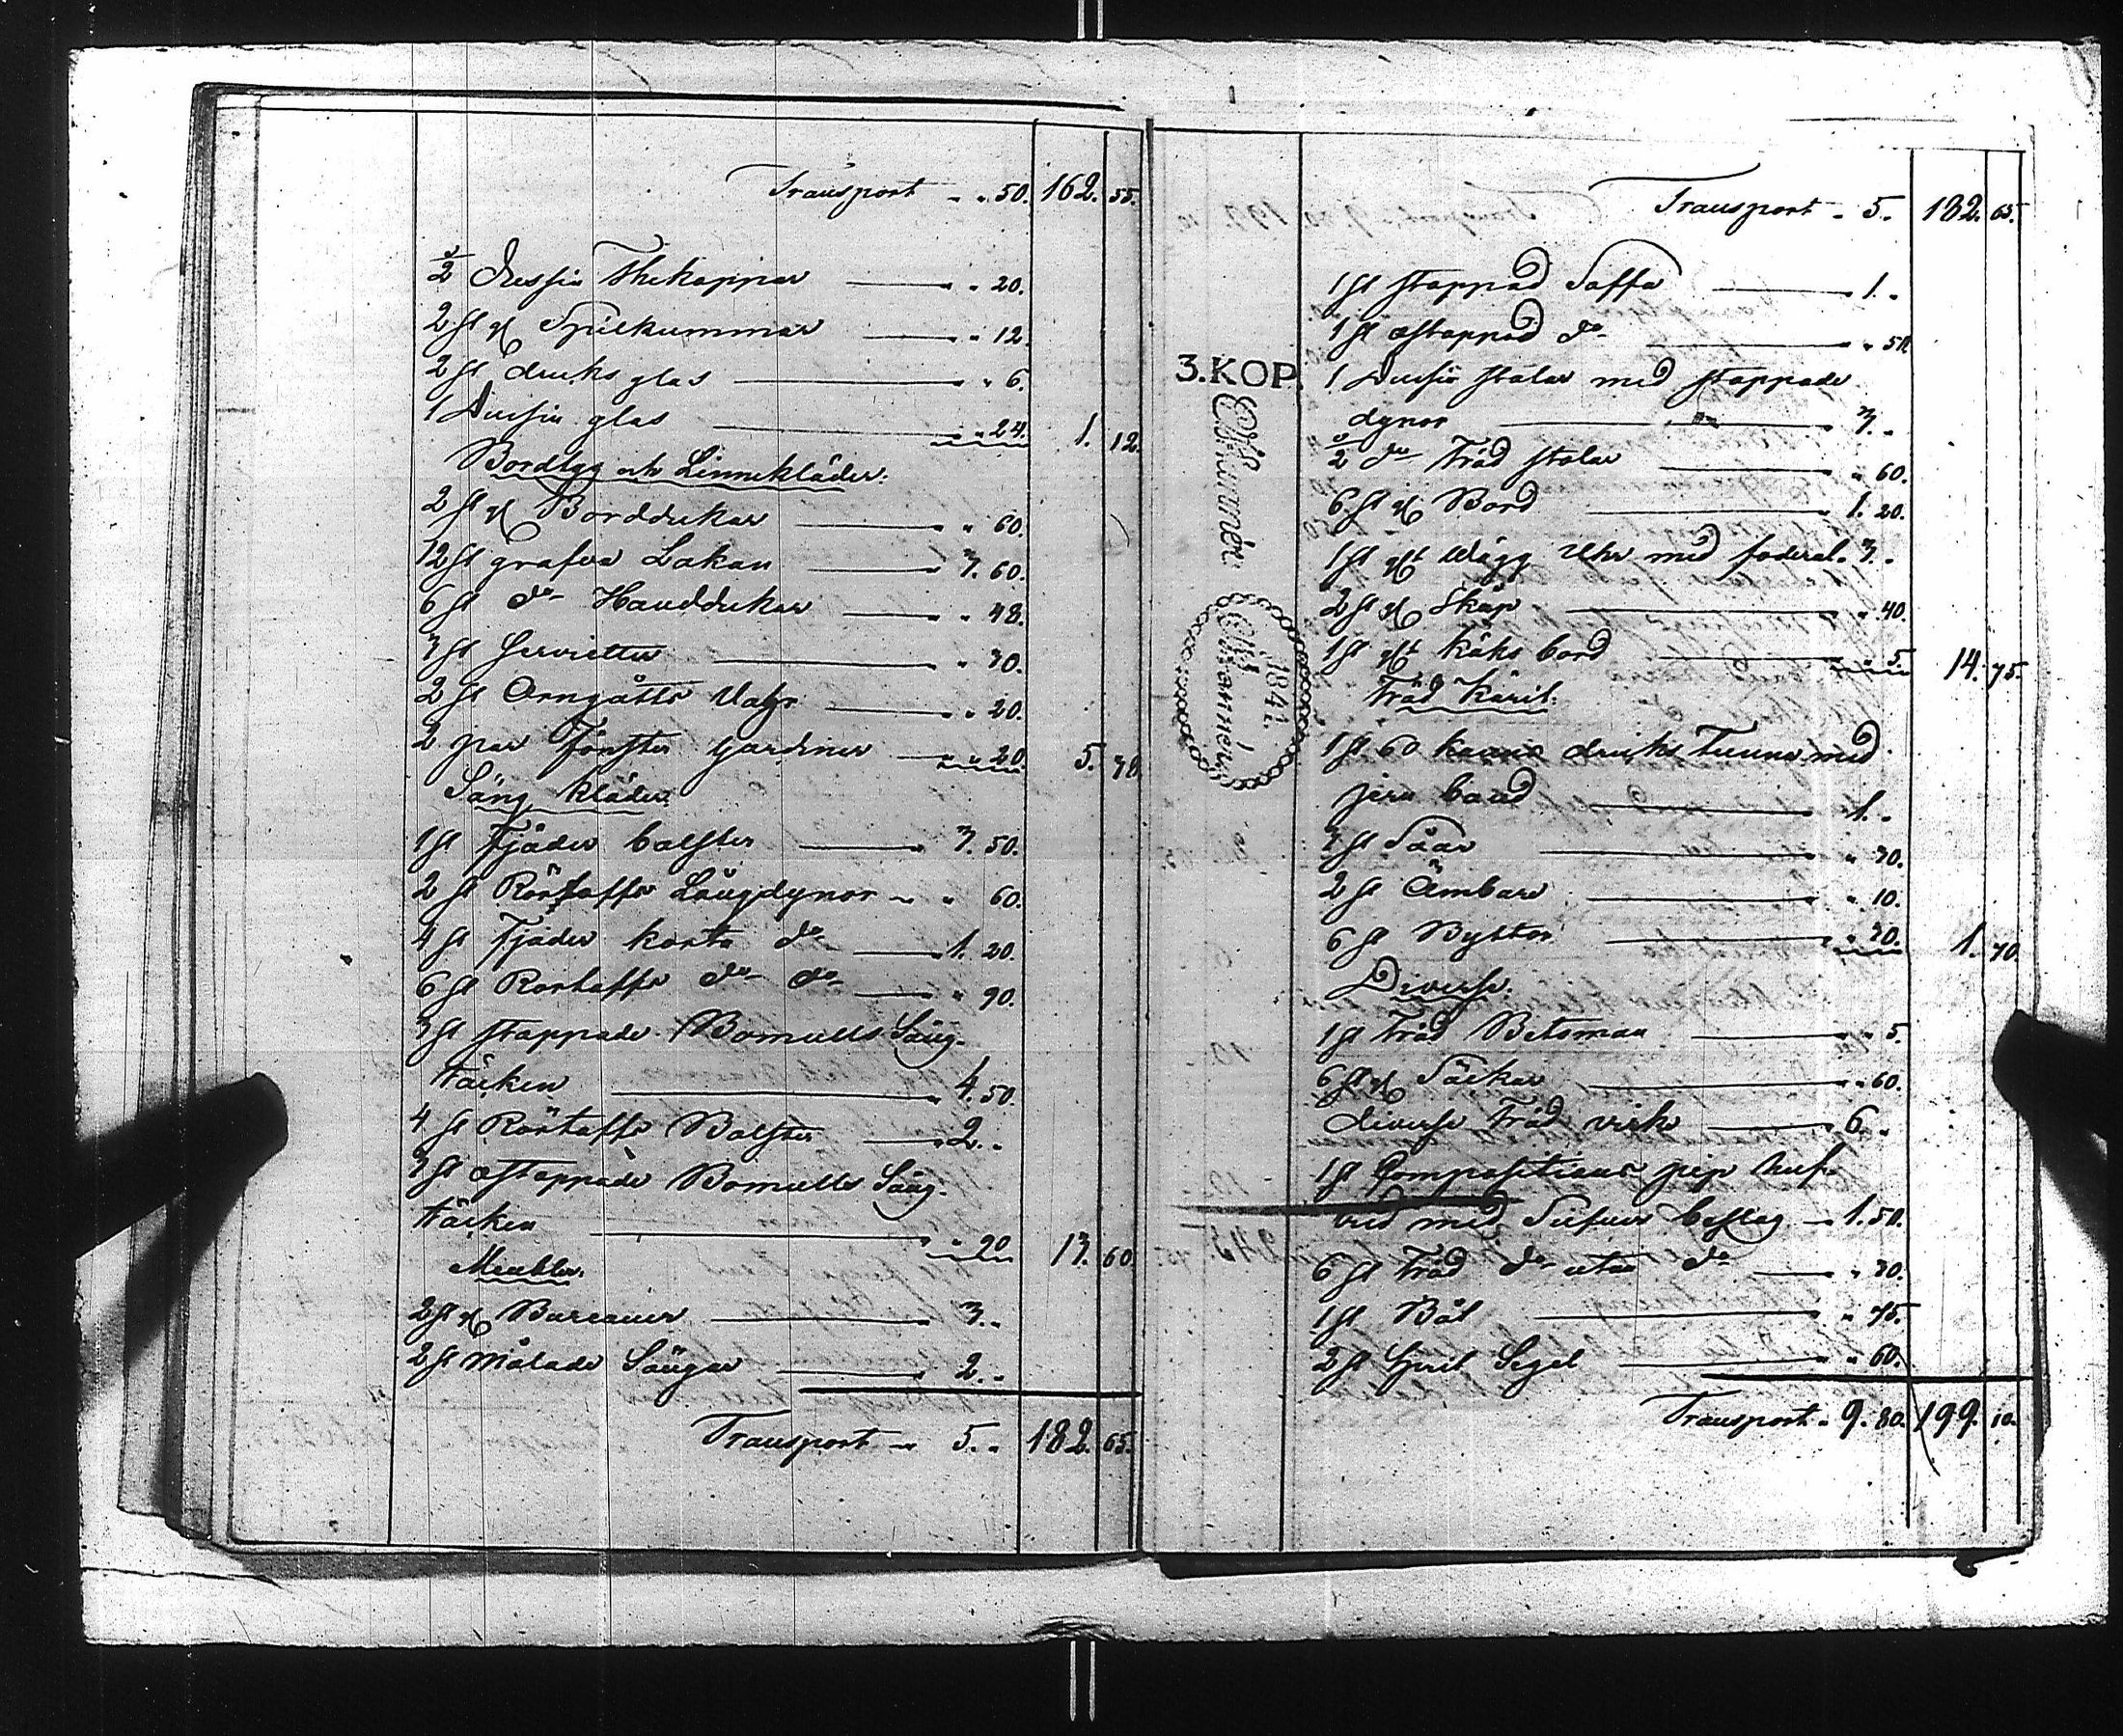 Transport - " 50. 162. 55.
1/2 Dussin Thekoppar — " 20.
2 st gl Spilkummar — " 12.
2 st dricks glas — " 6.
1 Dussin glas — " 24. 1. 12.
Bordtyg och Linnekläder.
2 st gl Borddukar — " 60.
12 st grofva Lakan — 3. 60.
6 st do Handdukar — " 48.
3 st Servietter — " 30.
2 st Örngåtts Vahr — " 20.
2 par Fönster gardiner — " 20. 5. 38.
Säng kläder.
1 st Fjäder bolster — 3. 50.
2 st Rörtafts Längdynor — " 60.
4 st Fjäder korta do — 1. 20.
6 st Rörtafts do do — " 90.
3 st stoppade Bomulls Säng-
täcken — 4. 50.
4 st Rörtafts Bolster — 2. "
3 st ostoppade Bomulls Säng-
täcken — " 90 13. 60.
Meubler.
2 st gl Bureauer — 3. "
2 st målade Sängar — 2. "
Transport — 5. " 182. 65.
3. KOP.
1841.
Transport - 5. 182. 65.
1 st stoppad Soffa — 1. "
1 st ostoppad do — " 50
1 Dussin stolar med stoppade
dynor — 3. "
1/2 do Träd stolar — " 60.
6 st gl Bord — 1. 20.
1 st glt Wägg Uhr med foderal. 3. "
2 st gl Skåp — " 40.
1 st glt Köks bord — " 5. 14. 75.
Träd Käril.
1 st 60 kanns dricks Tunna med
jern band — 1. "
3 st Såar — " 30.
2 st Ämbare — " 10.
6 st Byttor — " 30. 1. 70.
Diverse.
1 st Träd Betsman — " 5.
6 st gl Säckar — " 60.
diverse Träd virke — 6. "
1 st Compositions pip huf-
vud med Silfver beslag — 1. 50.
6 st Träd do utan do — " 30.
1 st Båt — " 75.
2 st Sprit Segel — " 60.
Transport - 9. 80. 199. 10.